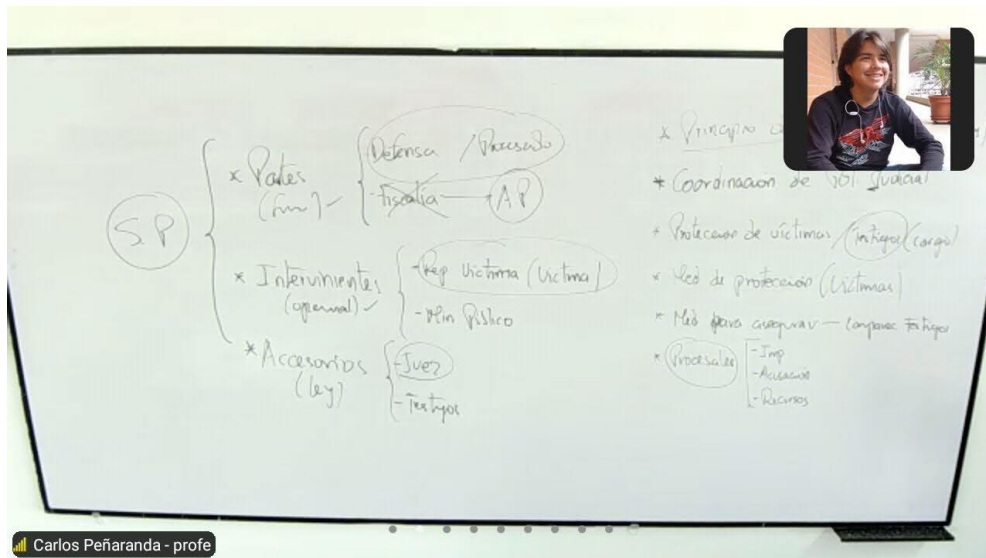 S.P
* Partes
(Fun)
Defensa / Procesado
- Fiscalía → A.P
* Intervinientes
(opcional)
- Rep Víctima (Víctima)
- Min Público
* Accesorios
(ley)
- Juez
- Testigos
* Principio
* Coordinación de Pol. Judicial
* Protección de víctimas / testigos (cargo)
* Med de protección (Víctimas)
* Med para asegurar — Comparec Testigos
* Procesales
- Imp
- Acusación
- Recursos
Carlos Peñaranda - profe